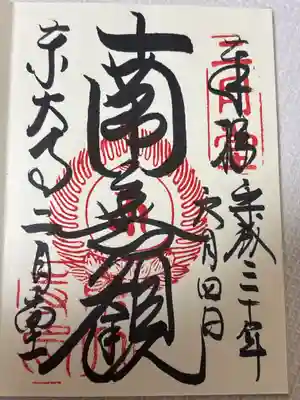 奉拝
平成三十年
月四日
南無観
東大寺
二月堂
二月堂